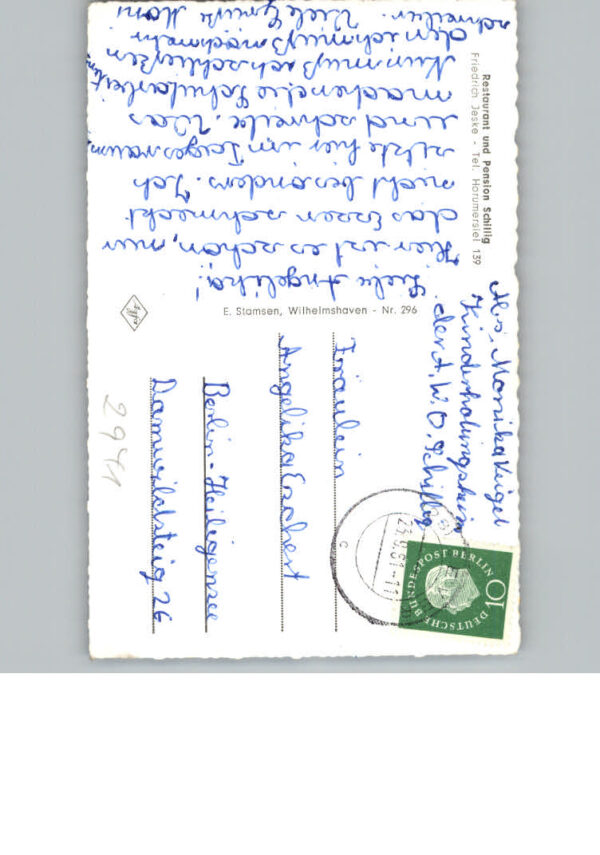 Restaurant und Pension Schillig
Friedrich Jeske - Tel. Horumersiel 139
Liebe Angelika!
Hier ist es schön, nur
das Essen schmeckt
nicht besonders. Ich
sitze hier im Tagesraum,
und schreibe. Was
machen die Schularbeiten
Nun muß ich schließen
den ich muß noch mehr
schreiben. Viele Grüße Moni
E. Stamsen, Wilhelmshaven - Nr. 296
Abs. Monika Kugel
Kindererholungsheim
der A.W.O. Schillig
Fräulein
Angelika Eschert
Berlin-Heiligensee
Damwildsteig 26
DEUTSCHE BUNDESPOST BERLIN
10
-11
c
2971